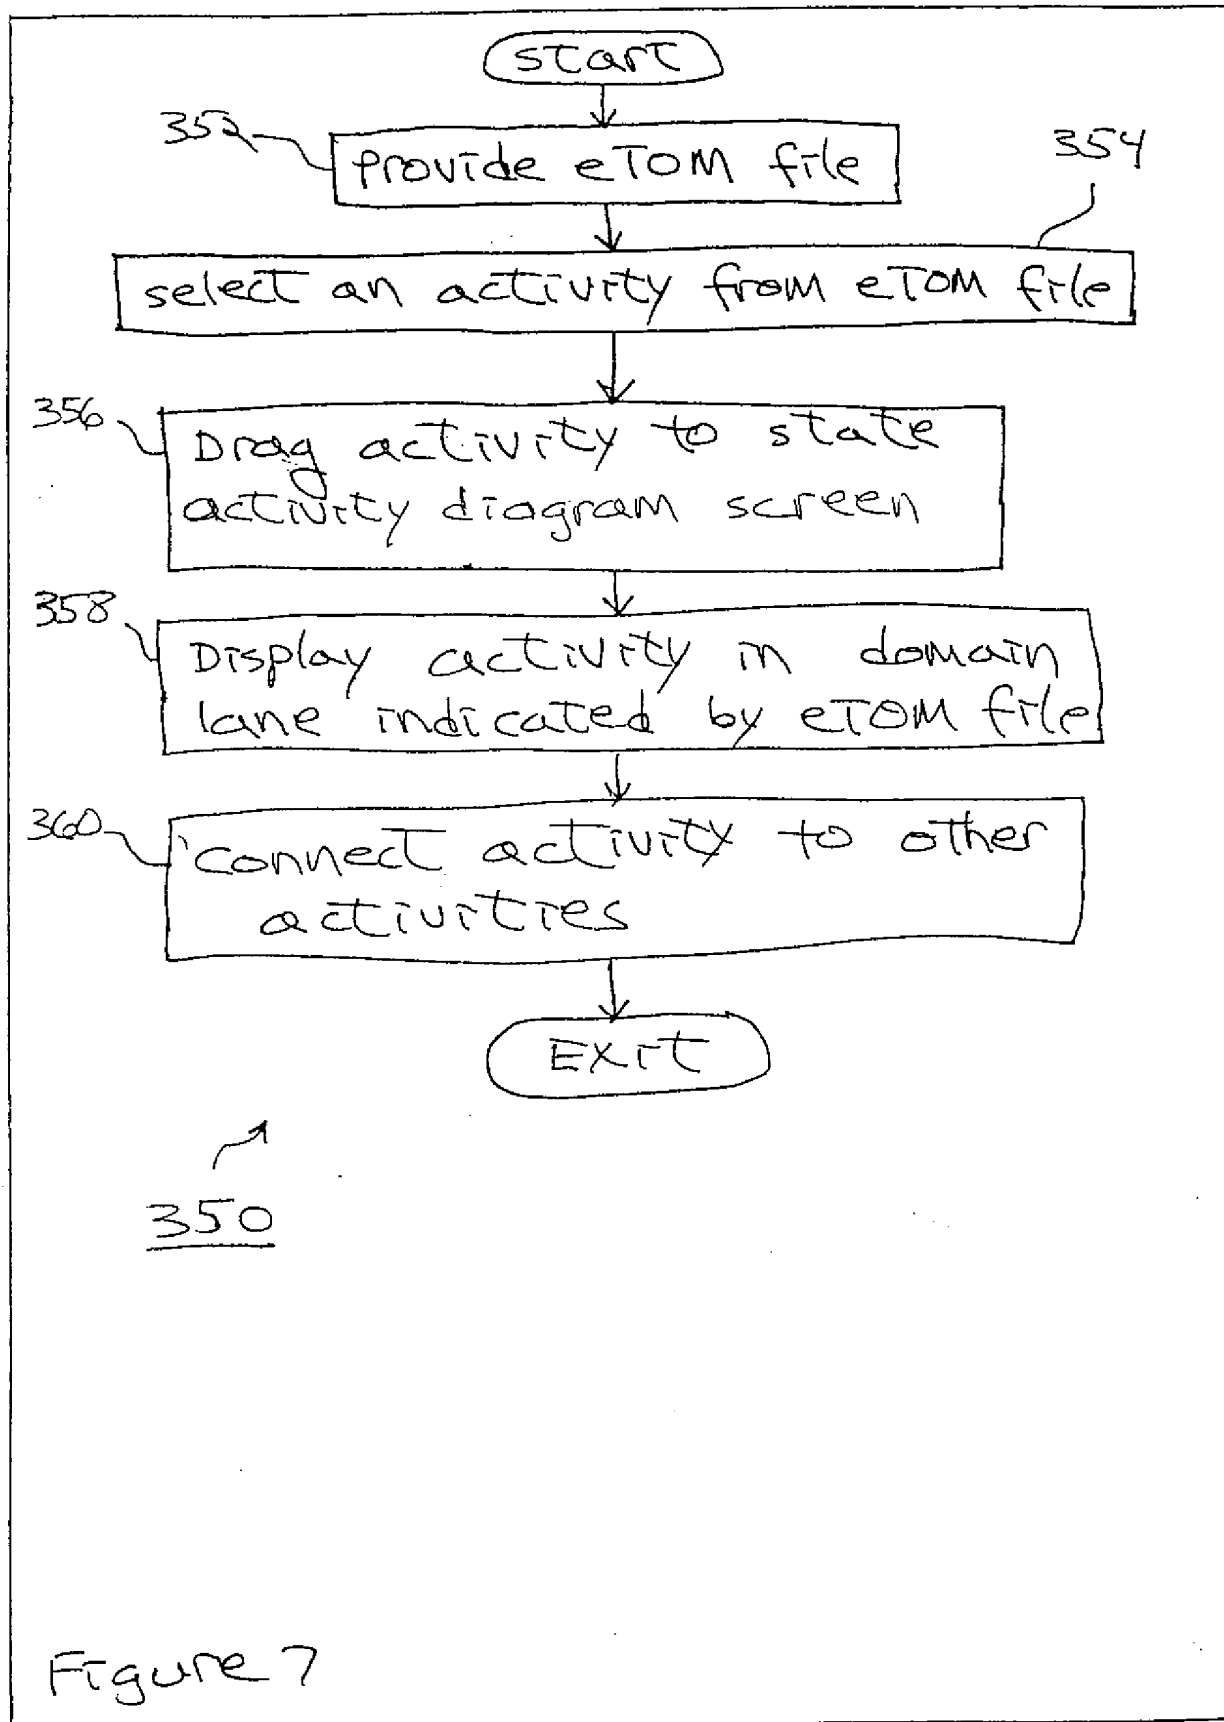 start
352
provide eTOM file
354
select an activity from eTOM file
356
Drag activity to state
activity diagram screen
358
Display activity in domain
lane indicated by eTOM file
360
connect activity to other
activities
Exit
350
Figure 7